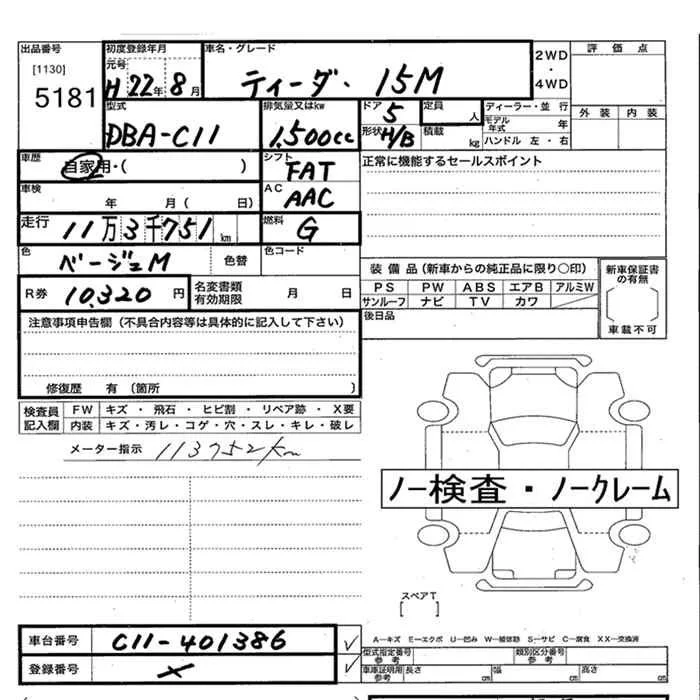 出品番号 初度登録年月 車名・グレード 2WD・4WD 評価点
[1130] 元号 H 22年 8月 ティーダ・ 15M
5181 外装 内装
型式 排気量又はkw ドア 5 定員 人 ディーラー・並行
DBA-C11 1,500cc 形状 H/B 積載 kg モデル年式 年
ハンドル 左・右
車歴 自家用・( ) シフト FAT 正常に機能するセールスポイント
車検 年 月( 日) AC AAC
走行 11万3千751km 燃料 G
色 ベージュM 色替 色コード
装備品(新車からの純正品に限り○印) 新車保証書の有無
R券 10,320円 名変書類有効期限 月 日
PS PW ABS エアB アルミW
サンルーフ ナビ TV カワ
車載不可
注意事項申告欄(不具合内容等は具体的に記入して下さい) 後日品
修復歴 有(箇所 )
検査員記入欄 FW キズ・飛石・ヒビ割・リペア跡・X要
内装 キズ・汚レ・コゲ・穴・スレ・キレ・破レ
メーター指示 113752km
ノー検査・ノークレーム
スペアT
[ ]
車台番号 C11-401386 ✓
A…キズ E…エクボ U…凹み W…補修跡 S…サビ C…腐食 XX…交換済
登録番号 × ✓
型式指定番号参考 類別区分番号参考
車庫証明用参考 長さ cm 幅 cm 高さ cm